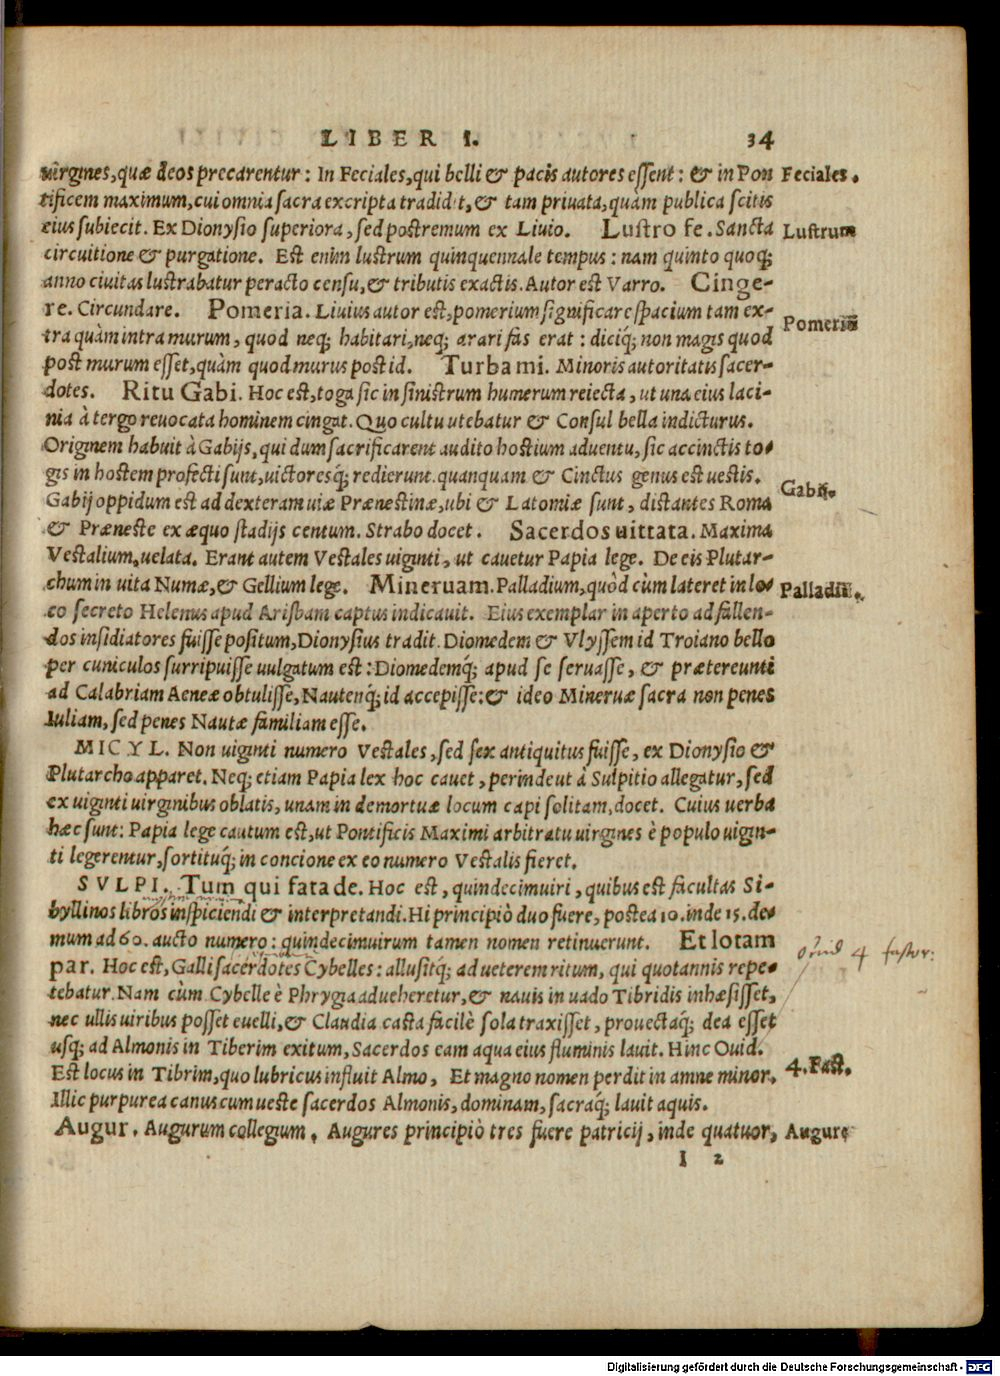 LIBER I. 34
uirgines, quæ deos precarentur: In Feciales, qui belli & pacis autores essent: & in Pon Feciales.
tificem maximum, cui omnia sacra exscripta tradidit, & tam priuata, quàm publica scitis
eius subiecit. Ex Dionysio superiora, sed postremum ex Liuio. Lustro fe. Sancta Lustrum
circuitione & purgatione. Est enim lustrum quinquennale tempus: nam quinto quoq;
anno ciuitas lustrabatur peracto censu, & tributis exactis. Autor est Varro. Cinge-
re. Circundare. Pomeria. Liuius autor est, pomerium significare spacium tam ex- Pomeriũ
tra quàm intra murum, quod neq; habitari, neq; arari fas erat: diciq́; non magis quod
post murum esset, quàm quod murus post id. Turba mi. Minoris autoritatis sacer-
dotes. Ritu Gabi. Hoc est, toga sic in sinistrum humerum reiecta, ut una eius laci-
nia à tergo reuocata hominem cingat. Quo cultu utebatur & Consul bella indicturus.
Originem habuit à Gabijs, qui dum sacrificarent audito hostium aduentu, sic accinctis to-
gis in hostem profecti sunt, uictoresq́; redierunt. quanquam & Cinctus genus est uestis.
Gabij oppidum est ad dexteram uiæ Prænestinæ, ubi & Latomiæ sunt, distantes Roma Gabij.
& Præneste ex æquo stadijs centum. Strabo docet. Sacerdos uittata. Maxima
Vestalium, uelata. Erant autem Vestales uiginti, ut cauetur Papia lege. De eis Plutar-
chum in uita Numæ, & Gellium lege. Mineruam. Palladium, quòd cùm lateret in lo- Palladiũ.
co secreto Helenus apud Arisbam captus indicauit. Eius exemplar in aperto ad fallen-
dos insidiatores fuisse positum, Dionysius tradit. Diomedem & Vlyssem id Troiano bello
per cuniculos surripuisse uulgatum est: Diomedemq́; apud se seruasse, & prætereunti
ad Calabriam Aeneæ obtulisse, Nautenq́; id accepisse: & ideo Mineruæ sacra non penes
Iuliam, sed penes Nautæ familiam esse.
MICYL. Non uiginti numero Vestales, sed sex antiquitus fuisse, ex Dionysio &
Plutarcho apparet. Neq; etiam Papia lex hoc cauet, perinde ut à Sulpitio allegatur, sed
ex uiginti uirginibus oblatis, unam in demortuæ locum capi solitam, docet. Cuius uerba
hæc sunt: Papia lege cautum est, ut Pontificis Maximi arbitratu uirgines è populo uigin-
ti legerentur, sortituq́; in concione ex eo numero Vestalis fieret.
SVLPI. Tum qui fata de. Hoc est, quindecimuiri, quibus est facultas Si-
byllinos libros inspiciendi & interpretandi. Hi principiò duo fuere, postea 10. inde 15. de-
mum ad 60. aucto numero: quindecimuirum tamen nomen retinuerunt. Et lotam
par. Hoc est, Galli sacerdotes Cybelles: allusitq́; ad ueterem ritum, qui quotannis repe- Ouid 4 fastor:
tebatur. Nam cùm Cybelle è Phrygia adueheretur, & nauis in uado Tibridis inhæsisset,
nec ullis uiribus posset euelli, & Claudia casta facilè sola traxisset, prouectaq́; dea esset
usq; ad Almonis in Tiberim exitum, Sacerdos eam aqua eius fluminis lauit. Hinc Ouid.
Est locus in Tibrim, quo lubricus influit Almo, Et magno nomen perdit in amne minor. 4. Fast.
Illic purpurea canus cum ueste sacerdos Almonis, dominam, sacraq́; lauit aquis.
Augur. Augurum collegium. Augures principiò tres fuere patricij, inde quatuor, Augure
I 2
Digitalisierung gefördert durch die Deutsche Forschungsgemeinschaft - DFG